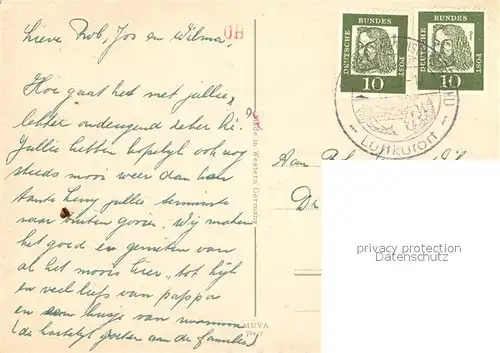 Lieve Rob, Jos en Wilma,
OB
Hoe gaat het met jullie,
lekker ondeugend zeker hè.
Jullie hebben hopelijk ook nog
steeds mooi weer dan kan
tante Leny jullie tenminste
naar buiten gooien. Wij maken
het goed en genieten van
al het moois hier, tot kijk
en veel liefs van pappa
en een kusje van
(de hartelijke groeten aan de families)
Made in Western Germany
MUVA
DEUTSCHE BUNDES POST
10
DEUTSCHE BUNDES POST
10
Luftkurort
Aan
privacy protection
Datenschutz